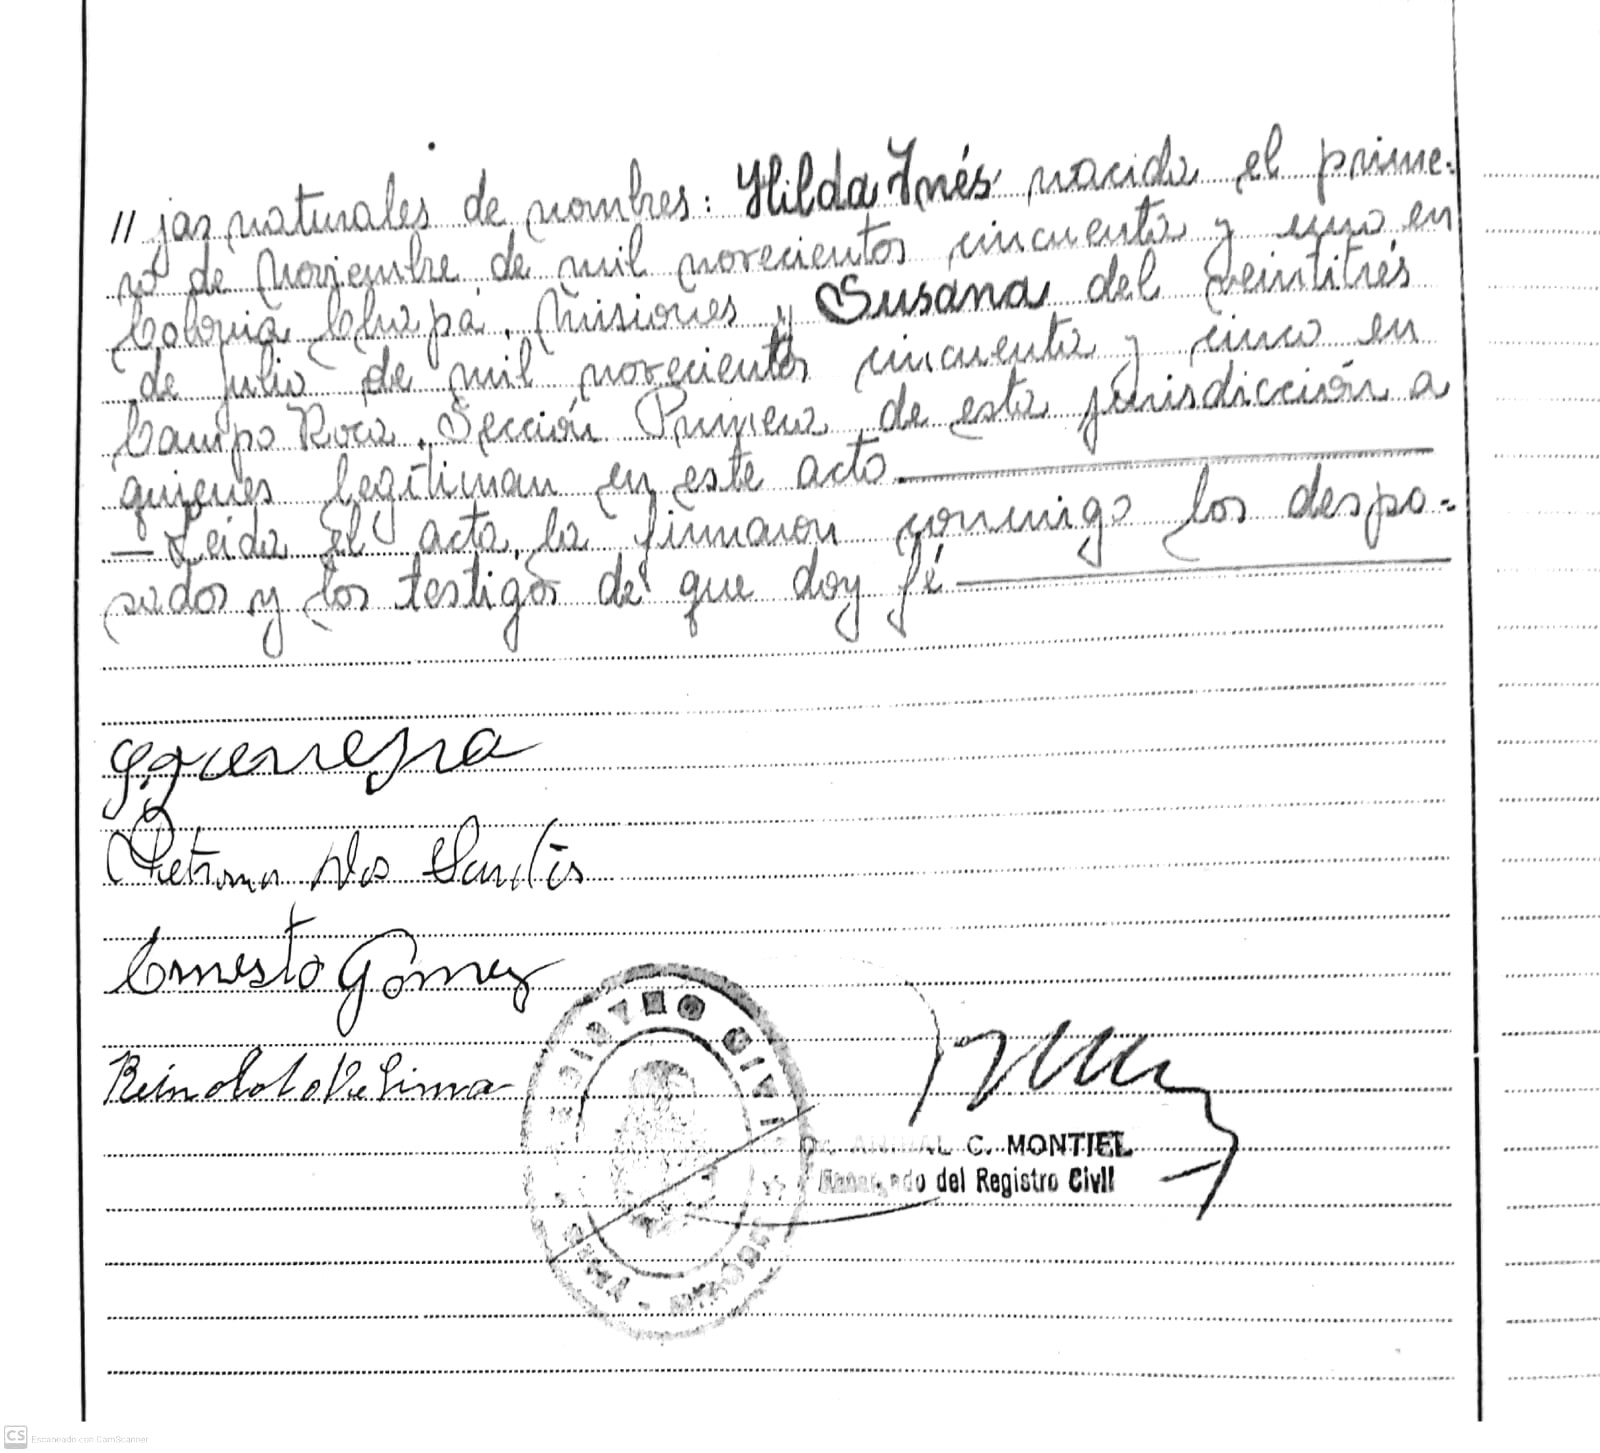 // jas naturales de nombres: Hilda Inés nacida el prime-
ro de Noviembre de mil novecientos cincuenta y uno en
Colonia Chapá, Misiones y Susana del veintitrés
de julio de mil novecientos cincuenta y cinco en
Campo Roca, Sección Primera de esta jurisdicción a
quienes legitiman en este acto
— Leida el acta, la firmaron conmigo los despo-
sados y los testigos de que doy fé
Dos Santos
Ernesto Gómez
REGISTRO CIVIL
C. MONTIEL
del Registro Civil
CS Escaneado con CamScanner